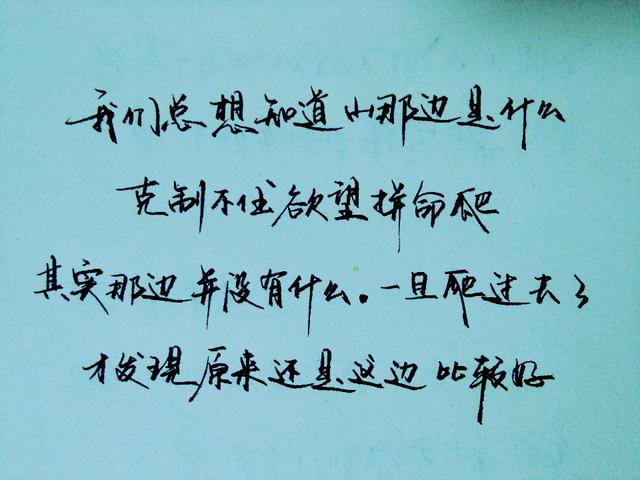 我们总想知道山那边是什么
克制不住欲望拼命爬
其实那边并没有什么。一旦爬过去了
才发现原来还是这边比较好